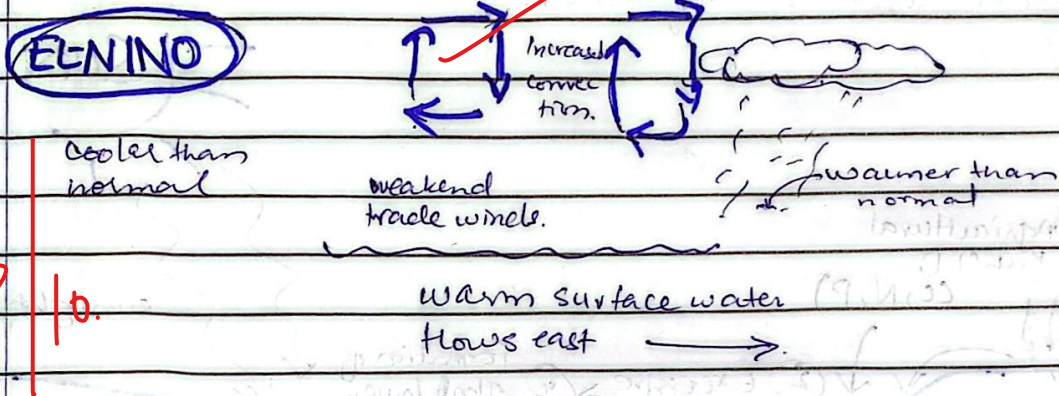 EL-NINO
Increased
convec
tion.
cooler than
normal
weakend
trade winds.
warmer than
normal
warm surface water
flows east
10.